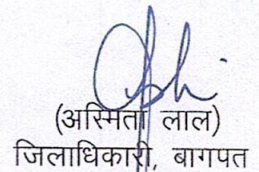 (अस्मिता लाल)
जिलाधिकारी, बागपत